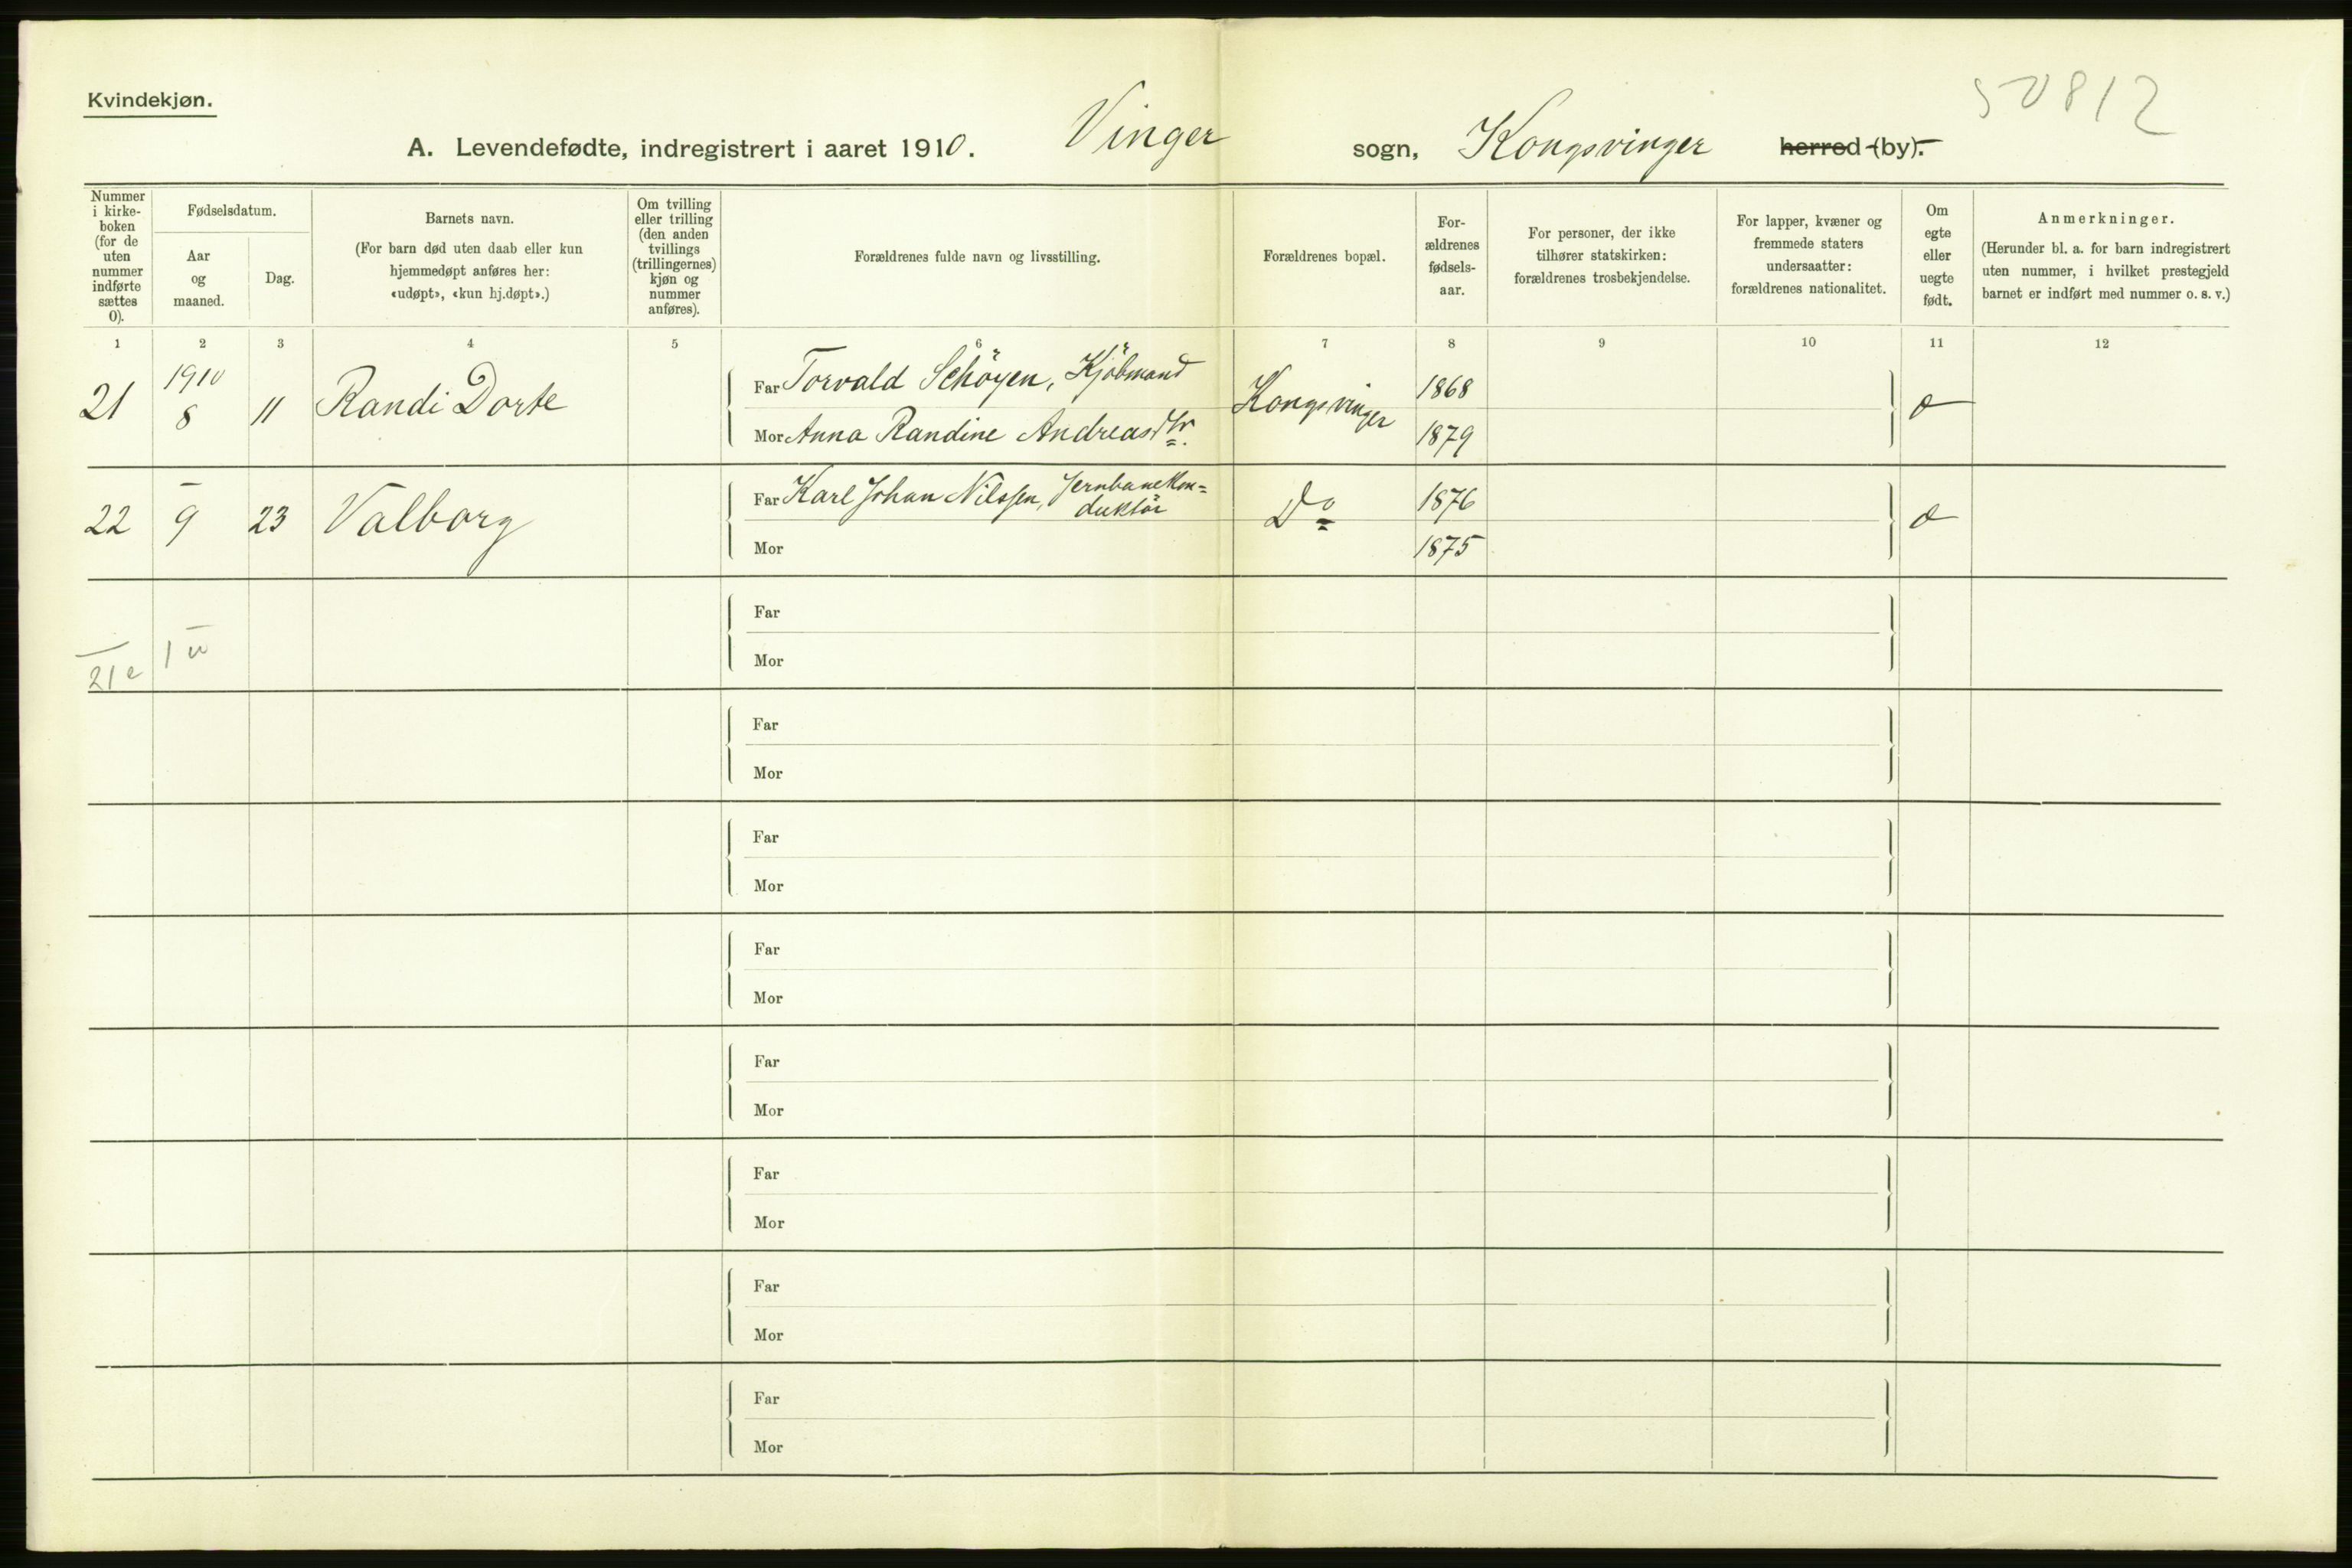 Kvindekjøn.
50812
A. Levendefødte, indregistrert i aaret 1910. Vinger sogn, Kongsvinger herred (by).
Nummer i kirke-boken (for de uten nummer indførte sættes 0).
Fødselsdatum.
Aar og maaned.
Dag.
Barnets navn.
(For barn død uten daab eller kun hjemmedøpt anføres her: «udøpt», «kun hj.døpt».)
Om tvilling eller trilling (den anden tvillings (trillingernes) kjøn og nummer anføres).
Forældrenes fulde navn og livsstilling.
Forældrenes bopæl.
For-ældrenes fødsels-aar.
For personer, der ikke tilhører statskirken: forældrenes trosbekjendelse.
For lapper, kvæner og fremmede staters undersaatter: forældrenes nationalitet.
Om egte eller uegte født.
Anmerkninger.
(Herunder bl. a. for barn indregistrert uten nummer, i hvilket prestegjeld barnet er indført med nummer o. s. v.)
1 2 3 4 5 6 7 8 9 10 11 12
21 1910 8 11 Randi Dorte Far Torvald Schöyen, Kjöbmand Kongsvinger 1868
Mor Anna Randine Andreasdtr. 1879
22 – 9 23 Valborg Far Karl Johan Nilssen, Jernbanekon=
duktör Do 1876
Mor 1875
Far
21 e 1 u
Mor
Far
Mor
Far
Mor
Far
Mor
Far
Mor
Far
Mor
Far
Mor
Far
Mor